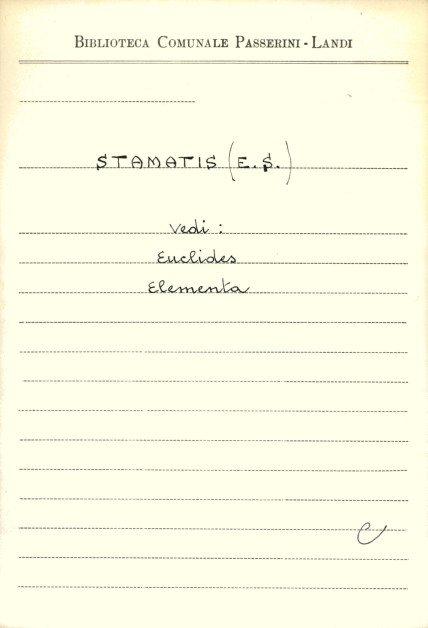 BIBLIOTECA COMUNALE PASSERINI - LANDI
STAMATIS (E. S.)
Vedi :
Euclides
Elementa